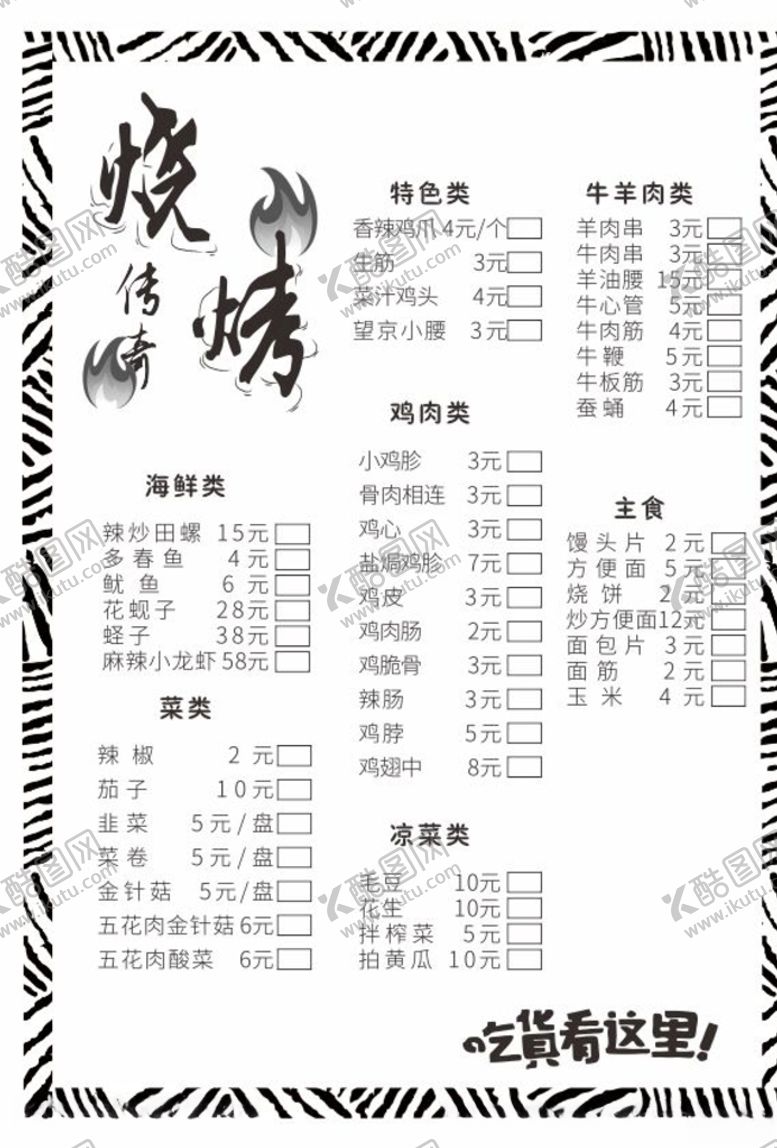 烧烤
传奇
特色类
香辣鸡爪 4元/个
生筋 3元
菜汁鸡头 4元
望京小腰 3元
牛羊肉类
羊肉串 3元
牛肉串 3元
羊油腰 15元
牛心管 5元
牛肉筋 4元
牛鞭 5元
牛板筋 3元
蚕蛹 4元
鸡肉类
小鸡胗 3元
骨肉相连 3元
鸡心 3元
盐焗鸡胗 7元
鸡皮 3元
鸡肉肠 2元
鸡脆骨 3元
辣肠 3元
鸡脖 5元
鸡翅中 8元
海鲜类
辣炒田螺 15元
多春鱼 4元
鱿鱼 6元
花蚬子 28元
蛏子 38元
麻辣小龙虾 58元
主食
馒头片 2元
方便面 5元
烧饼 2元
炒方便面 12元
面包片 3元
面筋 2元
玉米 4元
菜类
辣椒 2元
茄子 10元
韭菜 5元/盘
菜卷 5元/盘
金针菇 5元/盘
五花肉金针菇 6元
五花肉酸菜 6元
凉菜类
毛豆 10元
花生 10元
拌榨菜 5元
拍黄瓜 10元
吃货看这里!
酷图网
www.ikutu.com